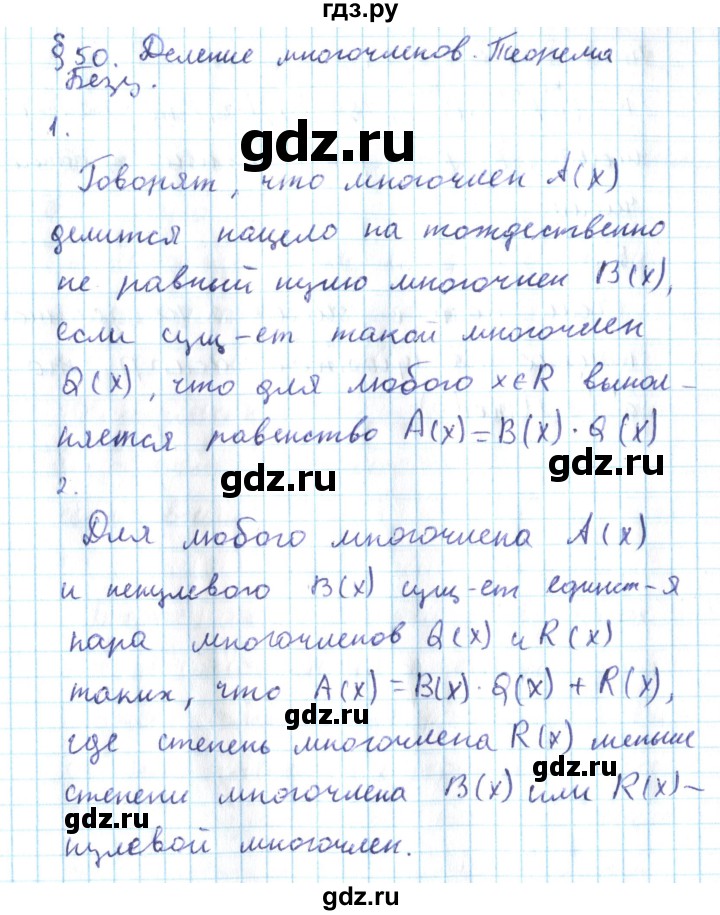 гдз.ру
§ 50. Деление многочленов. Теорема
Безу.
1.
gdz.ru
Говорят, что многочлен A(x)
делится нацело на тождественно
не равный нулю многочлен B(x),
gdz.ru
если сущ-ет такой многочлен
Q(x), что для любого x∈R выпол-
няется равенство A(x)=B(x)·Q(x)
gdz.ru
gdz.ru
2.
Для любого многочлена A(x)
и ненулевого B(x) сущ-ет единст-я
пара многочленов Q(x) и R(x)
таких, что A(x)=B(x)·Q(x)+R(x),
gdz.ru
где степень многочлена R(x) меньше
gdz.ru
степени многочлена B(x) или R(x)–
gdz.ru
нулевой многочлен.
gdz.ru